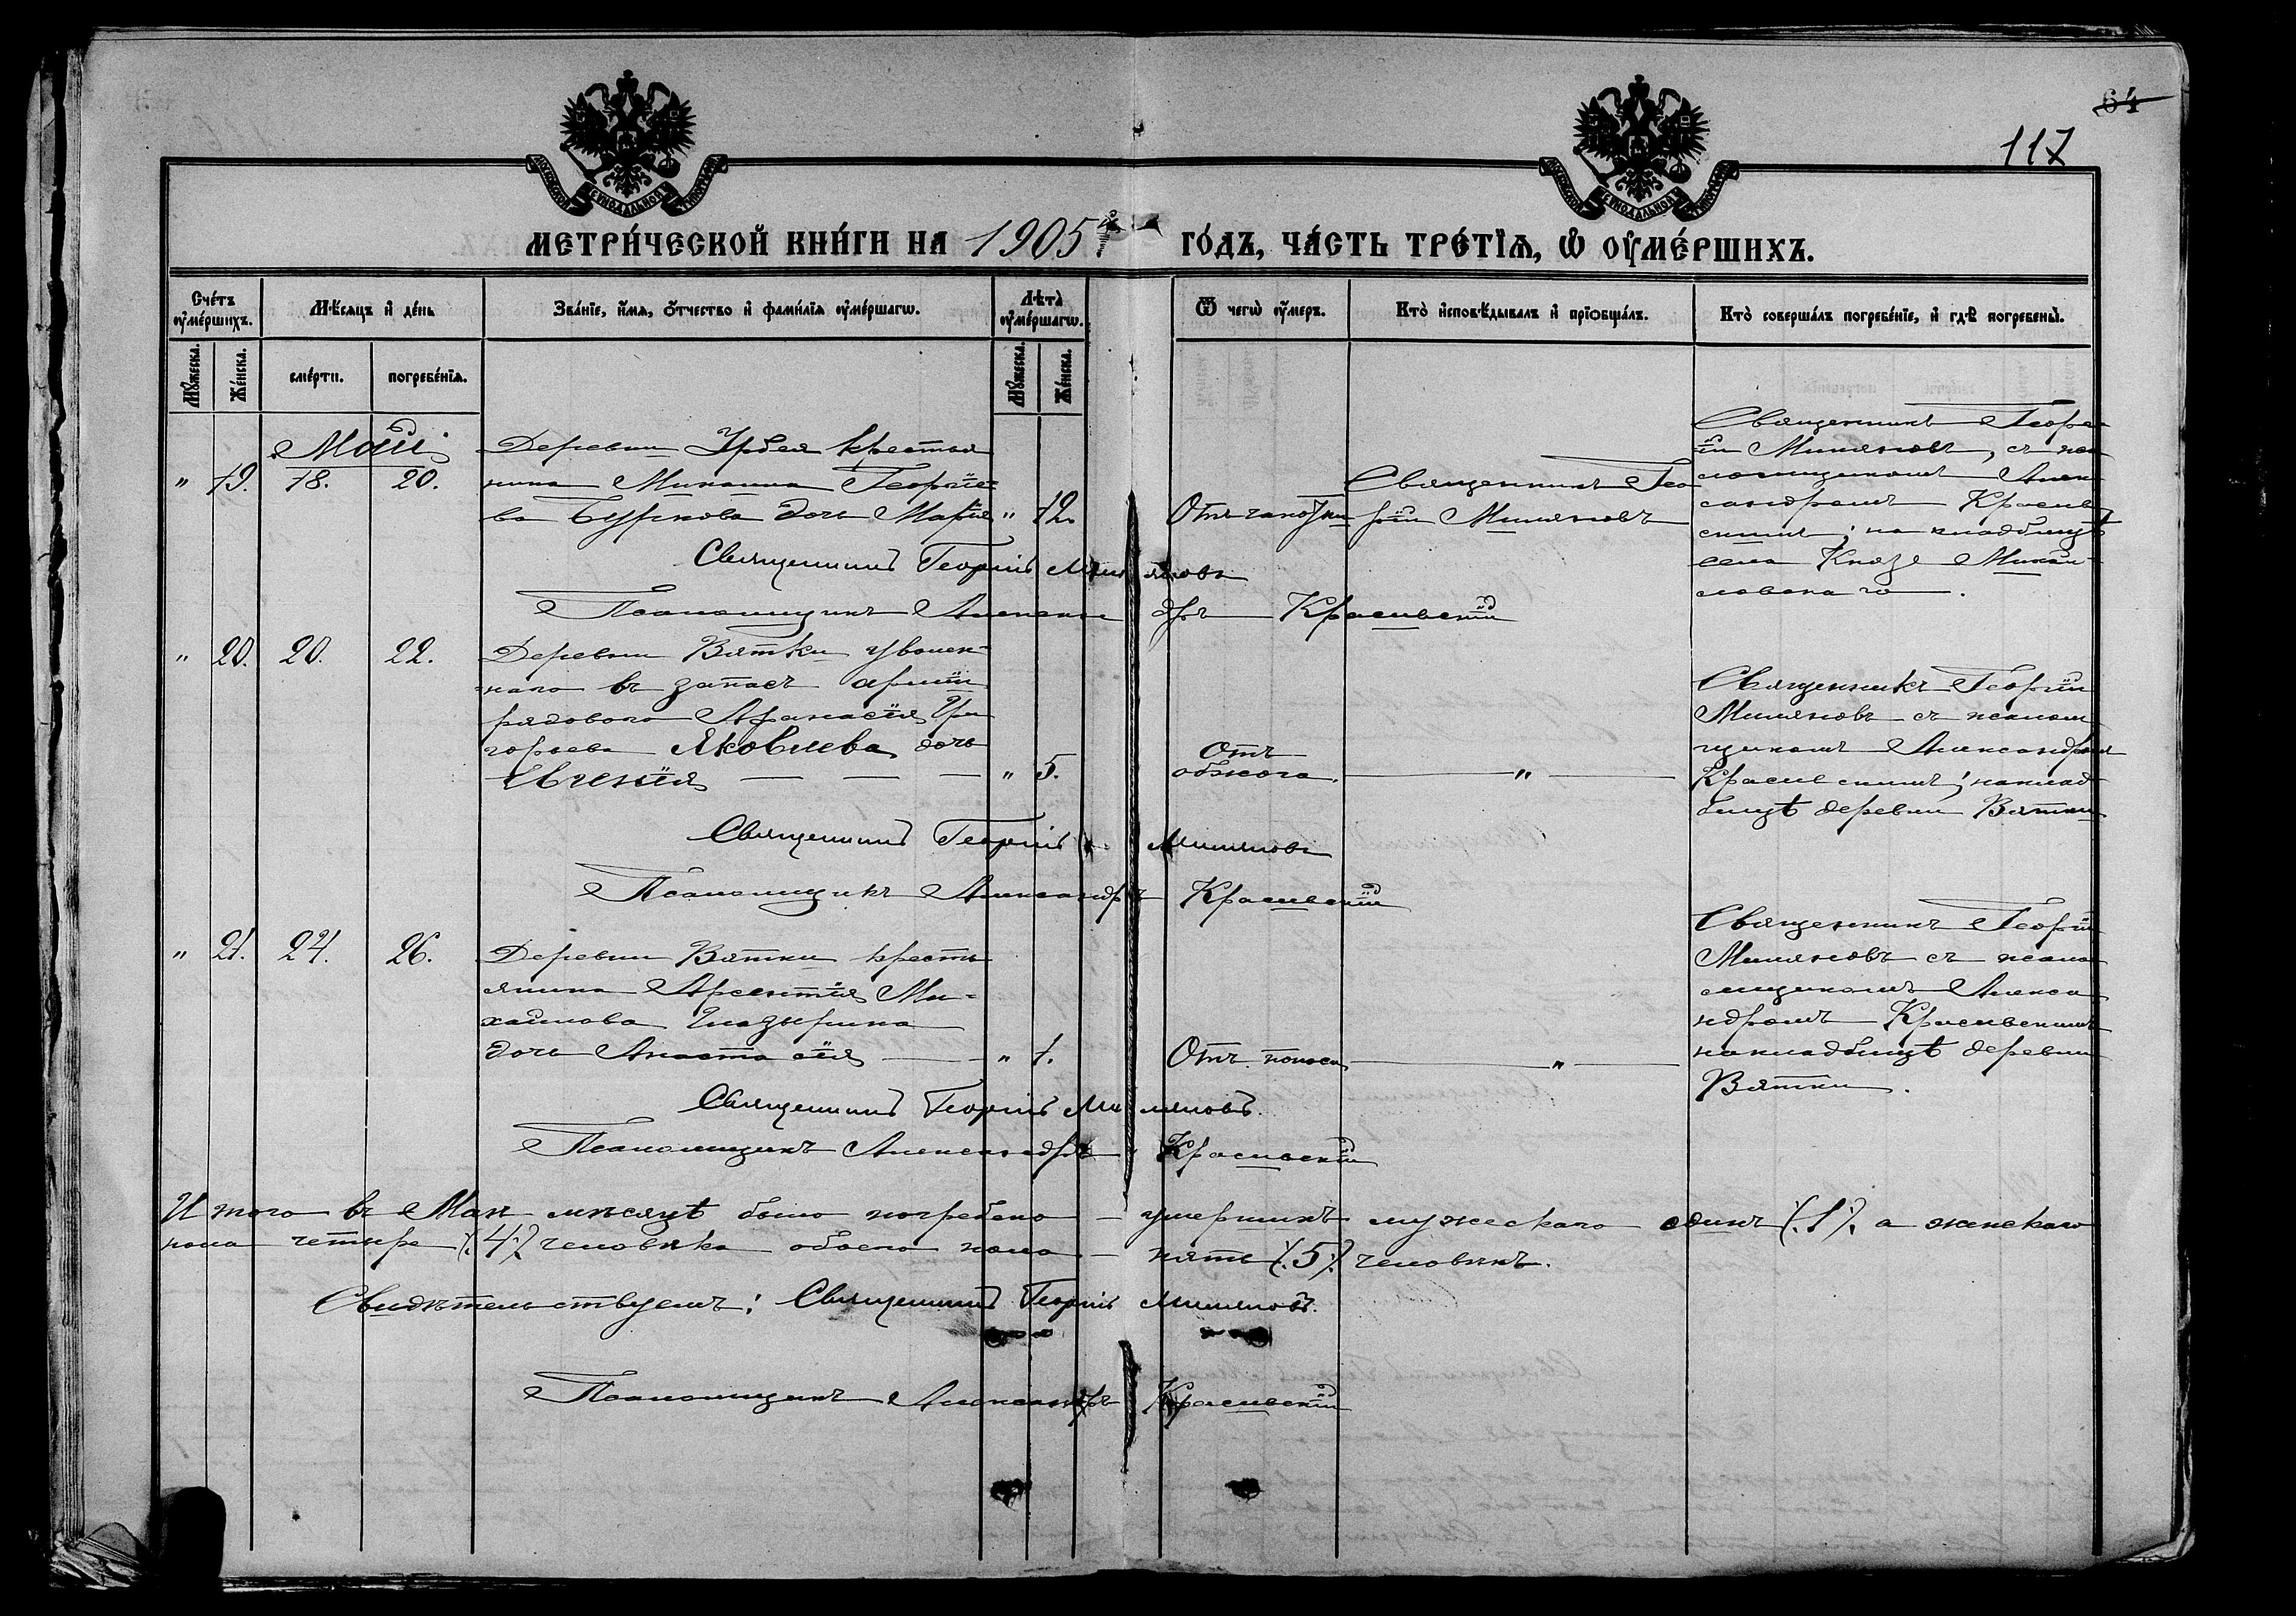 64
117
МЕТРИ́ЧЕСКОЙ КНИ́ГИ НА 1905й ГО́ДЪ, ЧА́СТЬ ТРЕ́ТІѦ, Ѡ҆ ОУ҆МЕ́РШИХЪ.
Сче́тъ оу҆ме́ршихъ.
Мѣ́сяцъ и҆ де́нь
Зва́нїе, и҆́мя, ѻ҆́тчество и҆ фами́лїя оу҆ме́ршагѡ.
Лѣ́та̀ оу҆ме́ршагѡ.
Ѿ чегѡ̀ оу҆́меръ.
Кто̀ и҆сповѣ́дывалъ и҆ прїѡбща́лъ.
Кто̀ соверша́лъ погребе́нїе, и҆ гдѣ̀ погребены̀.
Мꙋ́жеска.
Же́нска.
сме́рти.
погребе́нїя.
Мꙋ́жеска.
Же́нска.
Май
" 19. 18. 20.
Деревни Урбея крестья
нина Михаила Георгіе-
ва Буркова дочь Марія " 12.
Отъ чахотки
Священникъ Гео
ргій Миляновъ
Священникъ Георг
ій Миляновъ, съ пса
ломщикомъ Алек
сандромъ Красив
скимъ; на кладбищѣ
села Князе Михай-
ловскаго.
Священникъ Георгій Миляновъ
Псаломщикъ Александръ Красивскій
" 20. 20. 22.
Деревни Вятки уволен-
наго въ запасъ арміи
рядового Афанасія Гри
горьева Яковлева дочь
Евгенія " 5.
Отъ
обжога. "
Священникъ Георгій
Миляновъ съ псалом
щикомъ Александромъ
Красивскимъ; на клад
бищѣ деревни Вятки
Священникъ Георгій Миляновъ
Псаломщикъ Александръ Красивскій
" 21. 24. 26.
Деревни Вятки кресть
янина Арсентія Ми-
хайлова Глазырина
дочь Анастасія " 1.
Отъ поноса "
Священникъ Георгій
Миляновъ съ псало
мщикомъ Алекса
ндромъ Красивскимъ
на кладбищѣ деревни
Вятки.
Священникъ Георгій Миляновъ.
Псаломщикъ Александръ Красивскій
Итого въ Маѣ мѣсяцѣ было погребено умершихъ мужескаго одинъ (1) а женскаго
пола четыре (4) человѣка обоего пола пять (5) человѣкъ.
Свидѣтельствуемъ: Священникъ Георгій Миляновъ.
Псаломщикъ Александръ Красивскій